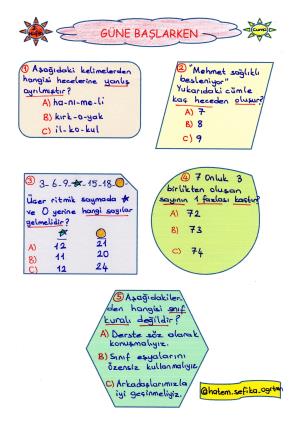 GÜNE BAŞLARKEN
Cuma
① Aşağıdaki kelimelerden
hangisi hecelerine yanlış
ayrılmıştır?
A) ha-nı-me-li
B) kırk-a-yak
C) il-ko-kul
② "Mehmet sağlıklı
besleniyor"
Yukarıdaki cümle
kaç heceden oluşur?
A) 7
B) 8
C) 9
③ 3-6-9-★-15-18-●
Üçer ritmik saymada ★
ve O yerine hangi sayılar
gelmelidir?
★ ●
A) 12 21
B) 11 20
C) 12 24
④ 7 Onluk 3
birlikten oluşan
sayının 1 fazlası kaçtır?
A) 72
B) 73
C) 74
⑤ Aşağıdakiler-
den hangisi sınıf
kuralı değildir?
A) Derste söz alarak
konuşmalıyız.
B) Sınıf eşyalarını
özensiz kullanmalıyız
C) Arkadaşlarımızla
iyi geçinmeliyiz.